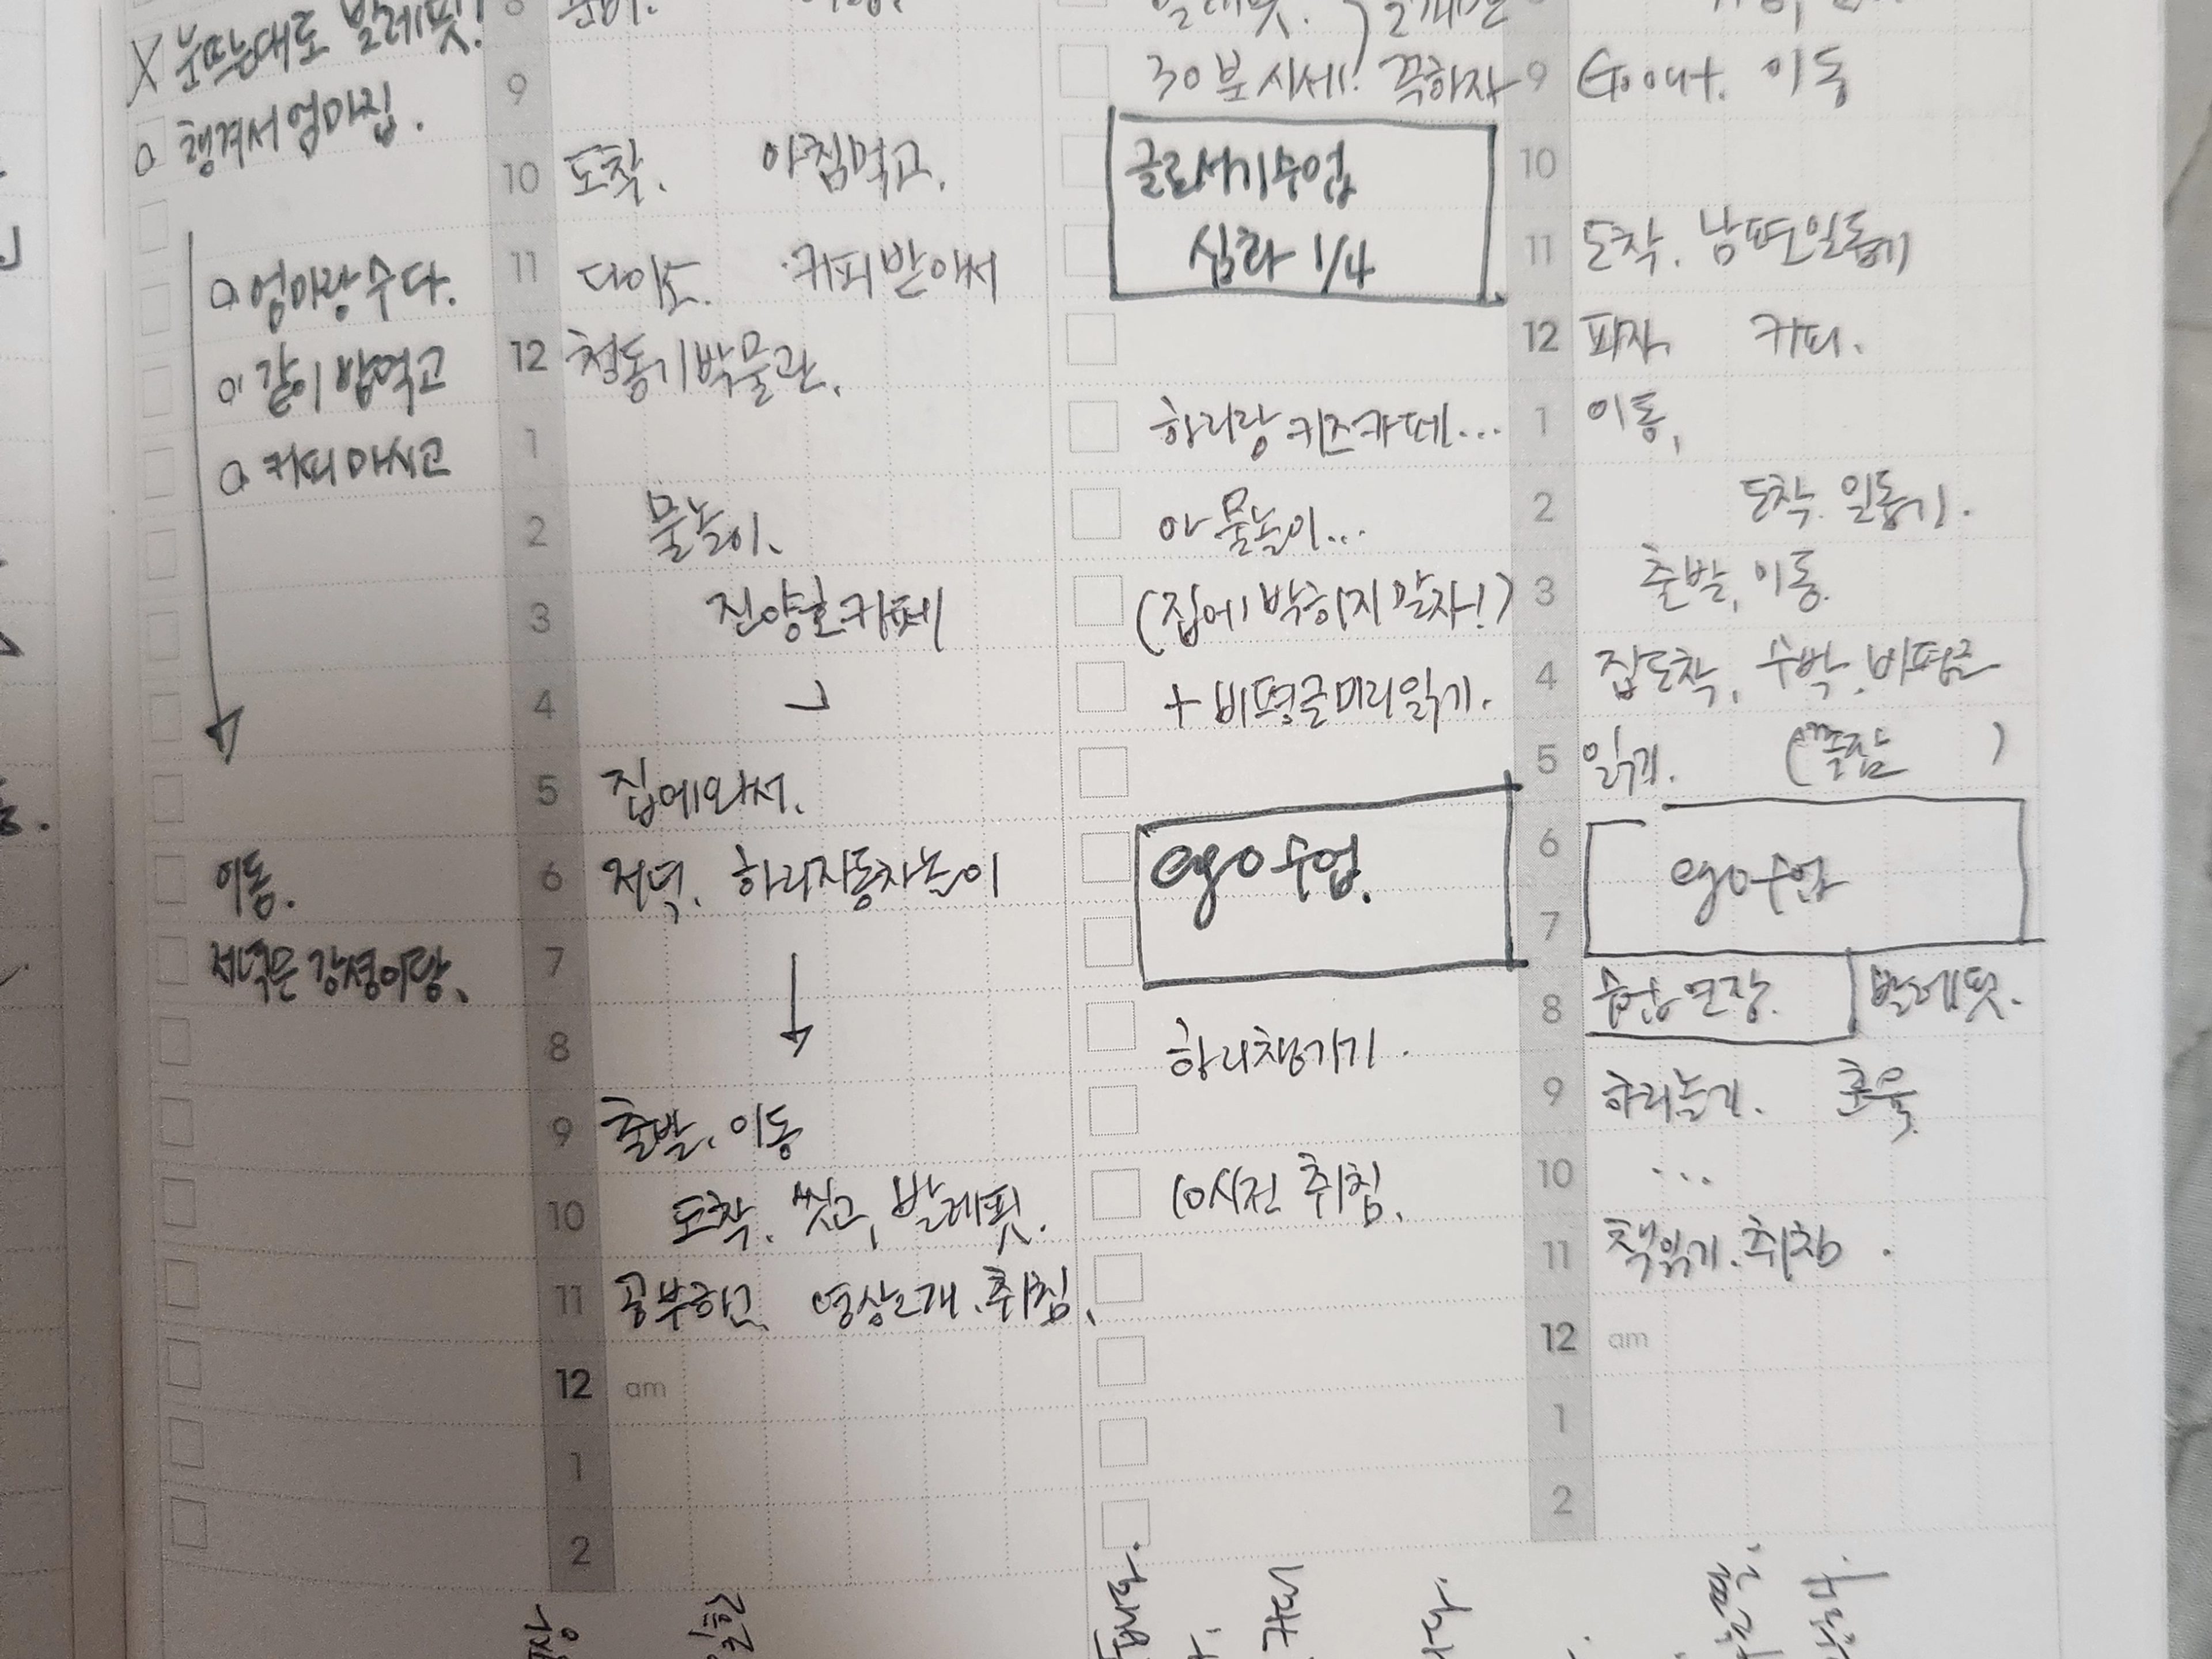 X 눈뜨는대로 발레핏!
챙겨서 엄마집.
엄마랑 수다.
같이 밥먹고
커피마시고
이동.
저녁은 강셩이랑.
8
9
10 도착. 아침먹고.
11 다이소. 커피받아서
12 청동기박물관.
1
2 물놀이.
3 진양호카페
4
5 집에와서.
6 저녁. 하리자동차놀이
7
8
9 출발. 이동
10 도착. 씻고, 발레핏.
11 공부하고. 영상2개. 취침.
12 am
1
2
발레핏.
30분시세! 꼭하자
글로서기수업
심화 1/4
하리랑 키즈카페...
아 물놀이...
(집에 박히지 말자!)
+ 비평글미리읽기.
ego수업.
하리챙기기.
10시전 취침.
9 Go out. 이동
10
11 도착. 남편일돕기
12 피자. 커피.
1 이동.
2 도착. 일돕기.
3 출발, 이동.
4 집도착. 수박. 비평글
5 읽기. (쪽잠)
6 ego수업
7
8 수업연장. 발레핏.
9 하리놀기.
10 ...
11 책읽기. 취침.
12 am
1
2
커피